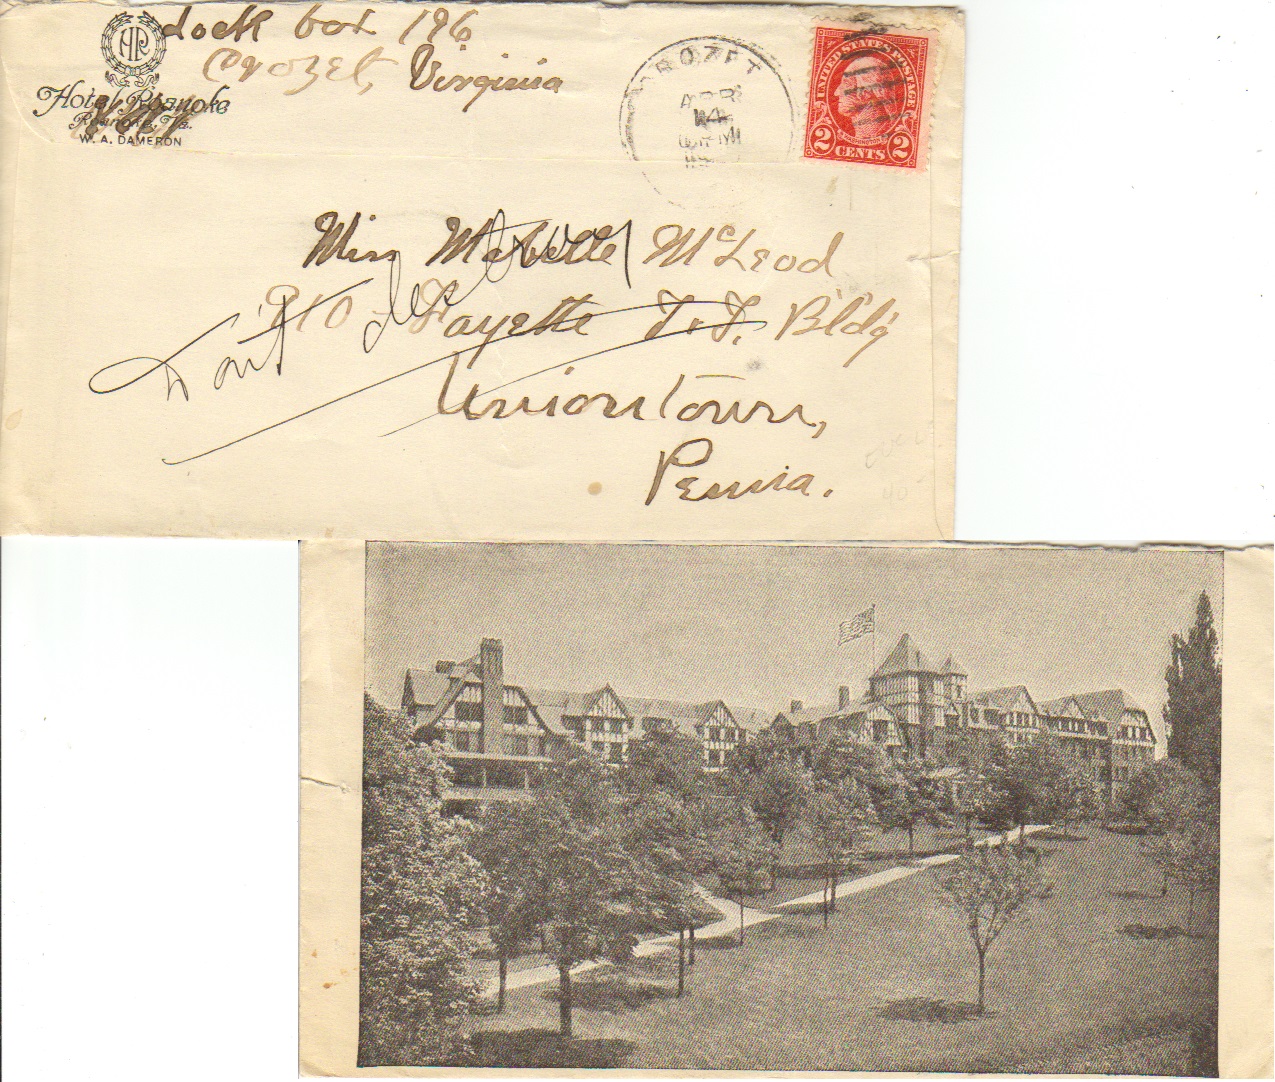 Lock box 196
Crozet, Virginia
HR
Hotel Roanoke
Roanoke, Va.
W. A. DAMERON
CROZET
APR
14
M
UNITED STATES POSTAGE
2 CENTS 2
Miss Mabelle McLeod
910 - Fayette T. T. Bldg
Uniontown,
Penna.
Don't destroy